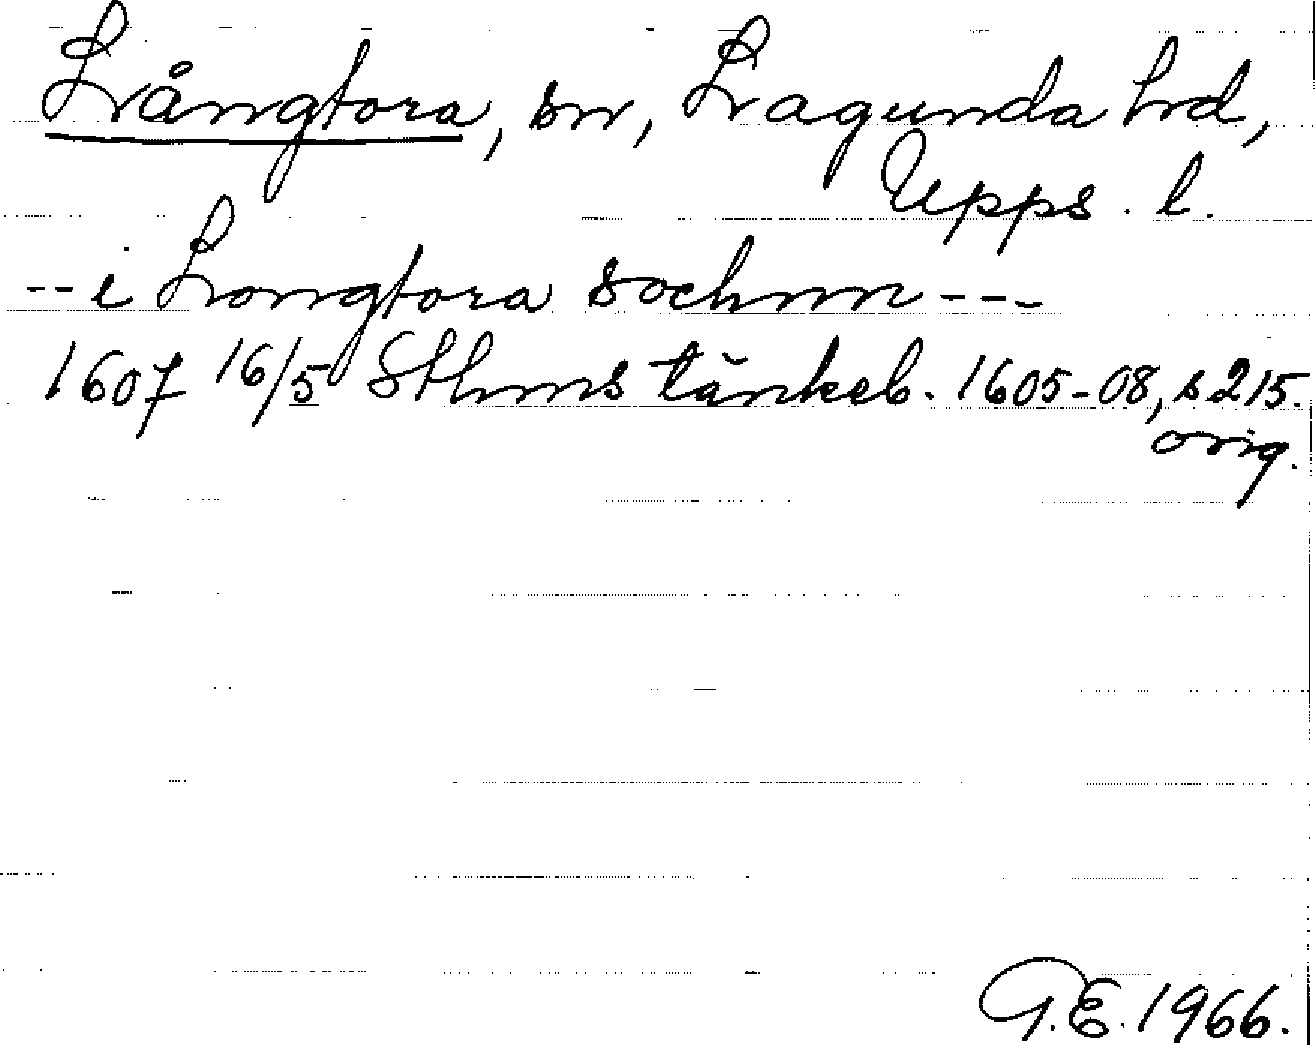 Långtora, sn, Lagunda hd,
Upps. l.
-- i Longtora sochnn ---
1607 16/5 Sthms tänkeb. 1605-08, s 215.
orig.
G.E. 1966.